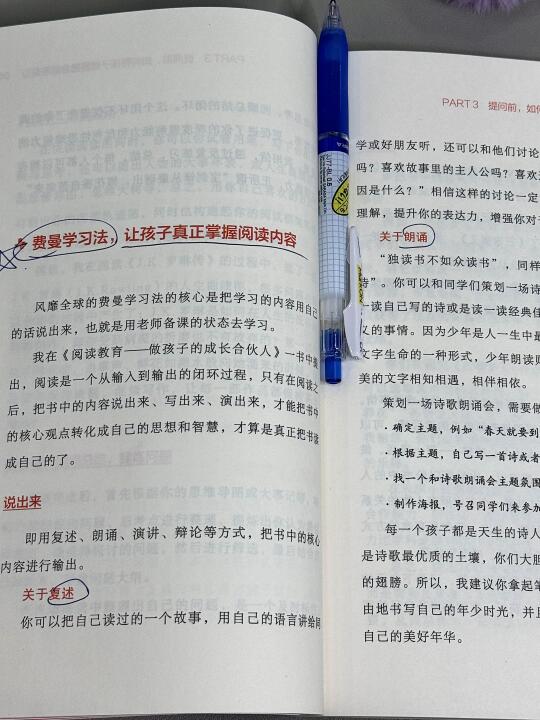 费曼学习法，让孩子真正掌握阅读内容
风靡全球的费曼学习法的核心是把学习的内容用自己
的话说出来，也就是用老师备课的状态去学习。
我在《阅读教育——做孩子的成长合伙人》一书中提
出，阅读是一个从输入到输出的闭环过程，只有在阅读之
后，把书中的内容说出来、写出来、演出来，才能把书中
的核心观点转化成自己的思想和智慧，才算是真正把书读
成自己的了。
说出来
即用复述、朗诵、演讲、辩论等方式，把书中的核心
内容进行输出。
关于复述
你可以把自己读过的一个故事，用自己的语言讲给同
PART 3 提问前，如何
学或好朋友听，还可以和他们讨论
吗？喜欢故事里的主人公吗？喜欢
因是什么？”相信这样的讨论一定
理解，提升你的表达力，增强你对
关于朗诵
“独读书不如众读书”，同样
诗”。你可以和同学们策划一场诗
一读自己写的诗或是读一读经典佳
义的事情。因为少年是人一生中最
文字生命的一种形式，少年朗读
美的文字相知相遇，相伴相依。
策划一场诗歌朗诵会，需要做
·确定主题，例如“春天就要到
·根据主题，自己写一首诗或者
·找一个和诗歌朗诵会主题氛围
·制作海报，号召同学们来参加
每一个孩子都是天生的诗人
是诗歌最优质的土壤，你们大胆
的翅膀。所以，我建议你拿起笔
由地书写自己的年少时光，并且
自己的美好年华。